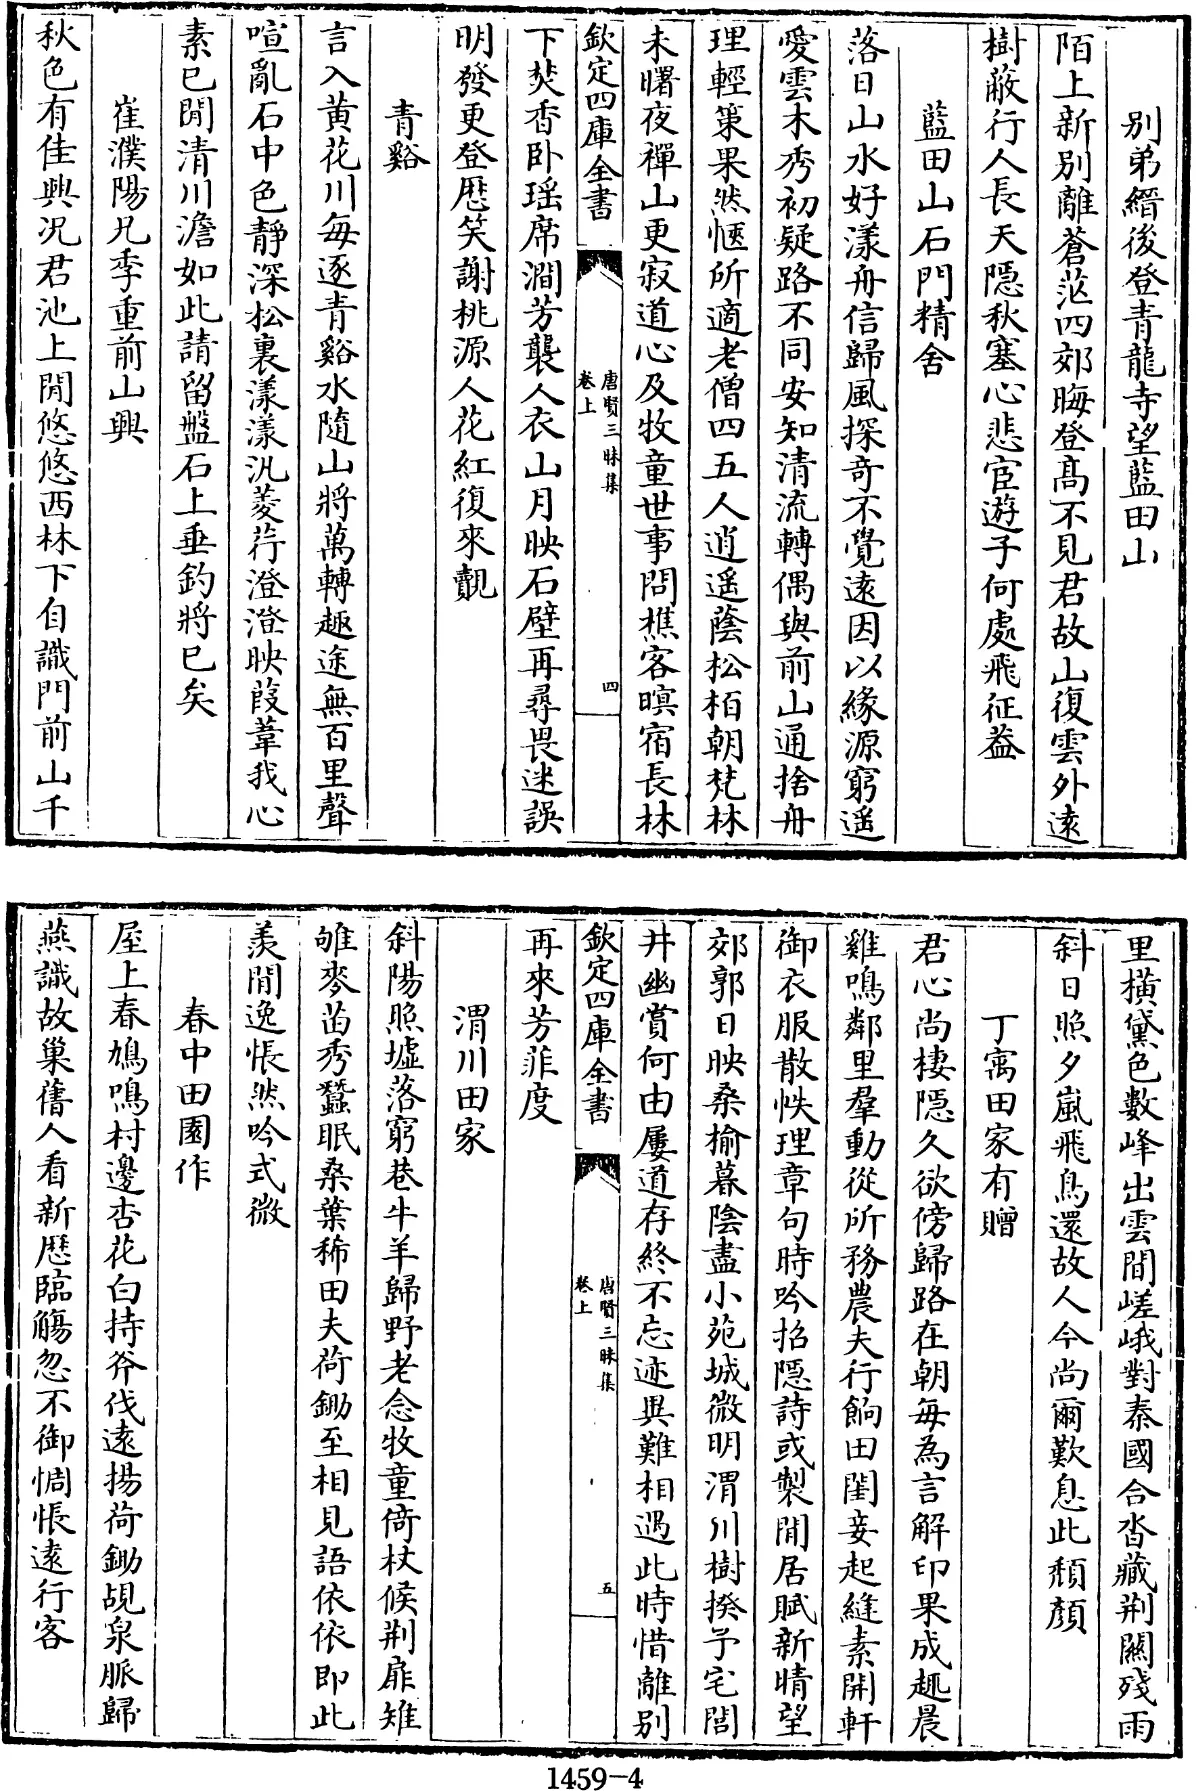 別弟縉後登青龍寺望藍田山
陌上新別離蒼茫四郊晦登髙不見君故山復雲外逺
樹蔽行人長天隠秋塞心悲宦遊子何處飛征葢
藍田山石門精舍
落日山水好漾舟信歸風探竒不覺逺因以縁源窮遥
愛雲木秀初疑路不同安知清流轉偶與前山通捨舟
理輕䇿果然愜所適老僧四五人逍遥蔭松栢朝梵林
未曙夜禪山更寂道心及牧童世事問樵客暝宿長林
欽定四庫全書
唐賢三昧集
卷上
四
下焚香卧瑶席澗芳襲人衣山月映石壁再尋畏迷誤
明發更登歴笑謝桃源人花紅復來覿
青谿
言入黄花川每逐青谿水隨山將萬轉趣途無百里聲
喧亂石中色靜深松裏漾漾汎菱荇澄澄映葭葦我心
素已閒清川澹如此請留盤石上垂釣將已矣
崔濮陽兄季重前山興
秋色有佳興况君池上閒悠悠西林下自識門前山千
里横黛色數峰出雲間嵯峨對秦國合沓藏荆闗殘雨
斜日照夕嵐飛鳥還故人今尚爾歎息此頽顔
丁㝢田家有贈
君心尚棲隠久欲傍歸路在朝每為言解印果成趣晨
雞鳴鄰里羣動從所務農夫行餉田閨妾起縫素開軒
御衣服散帙理章句時吟招隠詩或製閒居賦新晴望
郊郭日映桑榆暮陰盡小苑城微明渭川樹揆予宅閭
井幽賞何由屢道存終不忘迹異難相遇此時惜離别
欽定四庫全書
唐賢三昧集
卷上
五
再來芳菲度
渭川田家
斜陽照墟落窮巷牛羊歸野老念牧童倚杖候荆扉雉
雊麥苗秀蠶眠桑葉稀田夫荷鋤至相見語依依即此
羨閒逸悵然吟式微
春中田園作
屋上春鳩鳴村邊杏花白持斧伐逺揚荷鋤覘泉脈歸
燕識故巢舊人看新歴臨觴忽不御惆悵逺行客
1459-4